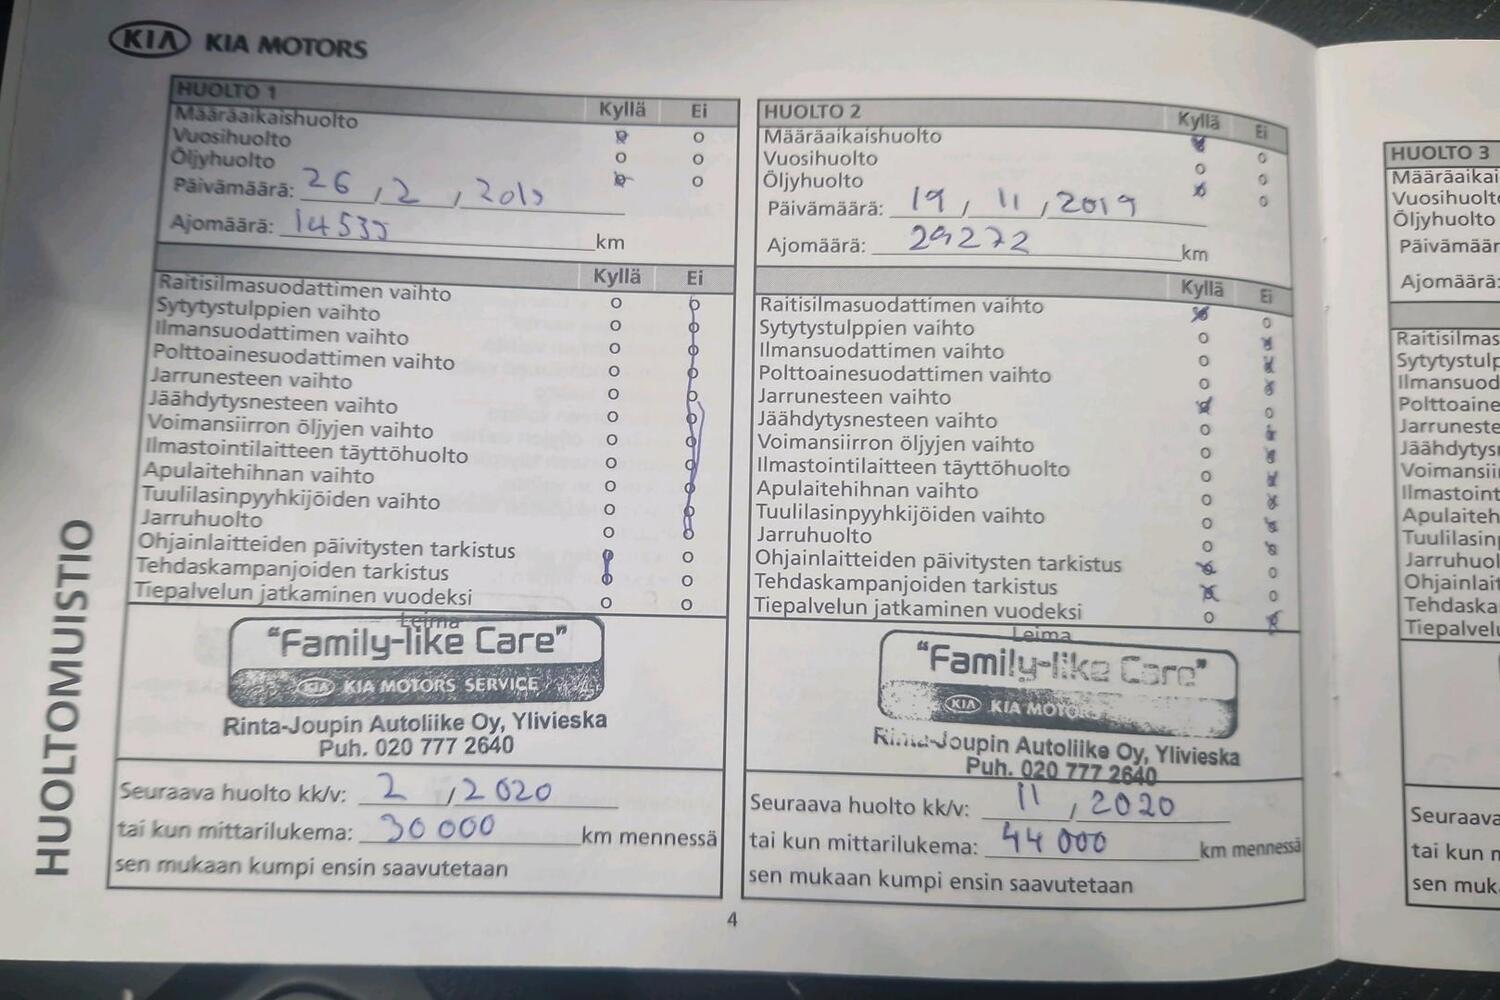 KIA KIA MOTORS
HUOLTOMUISTIO
HUOLTO 1 Kyllä Ei
Määräaikaishuolto
Vuosihuolto
Öljyhuolto
Päivämäärä: 26 / 2 /
Ajomäärä: km
Kyllä Ei
Raitisilmasuodattimen vaihto
Sytytystulppien vaihto
Ilmansuodattimen vaihto
Polttoainesuodattimen vaihto
Jarrunesteen vaihto
Jäähdytysnesteen vaihto
Voimansiirron öljyjen vaihto
Ilmastointilaitteen täyttöhuolto
Apulaitehihnan vaihto
Tuulilasinpyyhkijöiden vaihto
Jarruhuolto
Ohjainlaitteiden päivitysten tarkistus
Tehdaskampanjoiden tarkistus
Tiepalvelun jatkaminen vuodeksi
Leima
"Family-like Care"
KIA KIA MOTORS SERVICE
Rinta-Joupin Autoliike Oy, Ylivieska
Puh. 020 777 2640
Seuraava huolto kk/v: 2 / 2020
tai kun mittarilukema: 30 000 km mennessä
sen mukaan kumpi ensin saavutetaan
HUOLTO 2 Kyllä Ei
Määräaikaishuolto
Vuosihuolto
Öljyhuolto
Päivämäärä: 19 / 11 / 2019
Ajomäärä: 29272 km
Kyllä Ei
Raitisilmasuodattimen vaihto
Sytytystulppien vaihto
Ilmansuodattimen vaihto
Polttoainesuodattimen vaihto
Jarrunesteen vaihto
Jäähdytysnesteen vaihto
Voimansiirron öljyjen vaihto
Ilmastointilaitteen täyttöhuolto
Apulaitehihnan vaihto
Tuulilasinpyyhkijöiden vaihto
Jarruhuolto
Ohjainlaitteiden päivitysten tarkistus
Tehdaskampanjoiden tarkistus
Tiepalvelun jatkaminen vuodeksi
Leima
"Family-like Care"
KIA KIA MOTORS
Rinta-Joupin Autoliike Oy, Ylivieska
Puh. 020 777 2640
Seuraava huolto kk/v: 11 / 2020
tai kun mittarilukema: 44 000 km mennessä
sen mukaan kumpi ensin saavutetaan
4
HUOLTO 3
Määräaikai
Vuosihuolto
Öljyhuolto
Päivämäär
Ajomäärä:
Raitisilmas
Sytytystulp
Ilmansuod
Polttoaine
Jarruneste
Jäähdytysn
Voimansiir
Ilmastoint
Apulaiteh
Tuulilasinp
Jarruhuol
Ohjainlait
Tehdaska
Tiepalvelu
Seuraava
tai kun m
sen muk